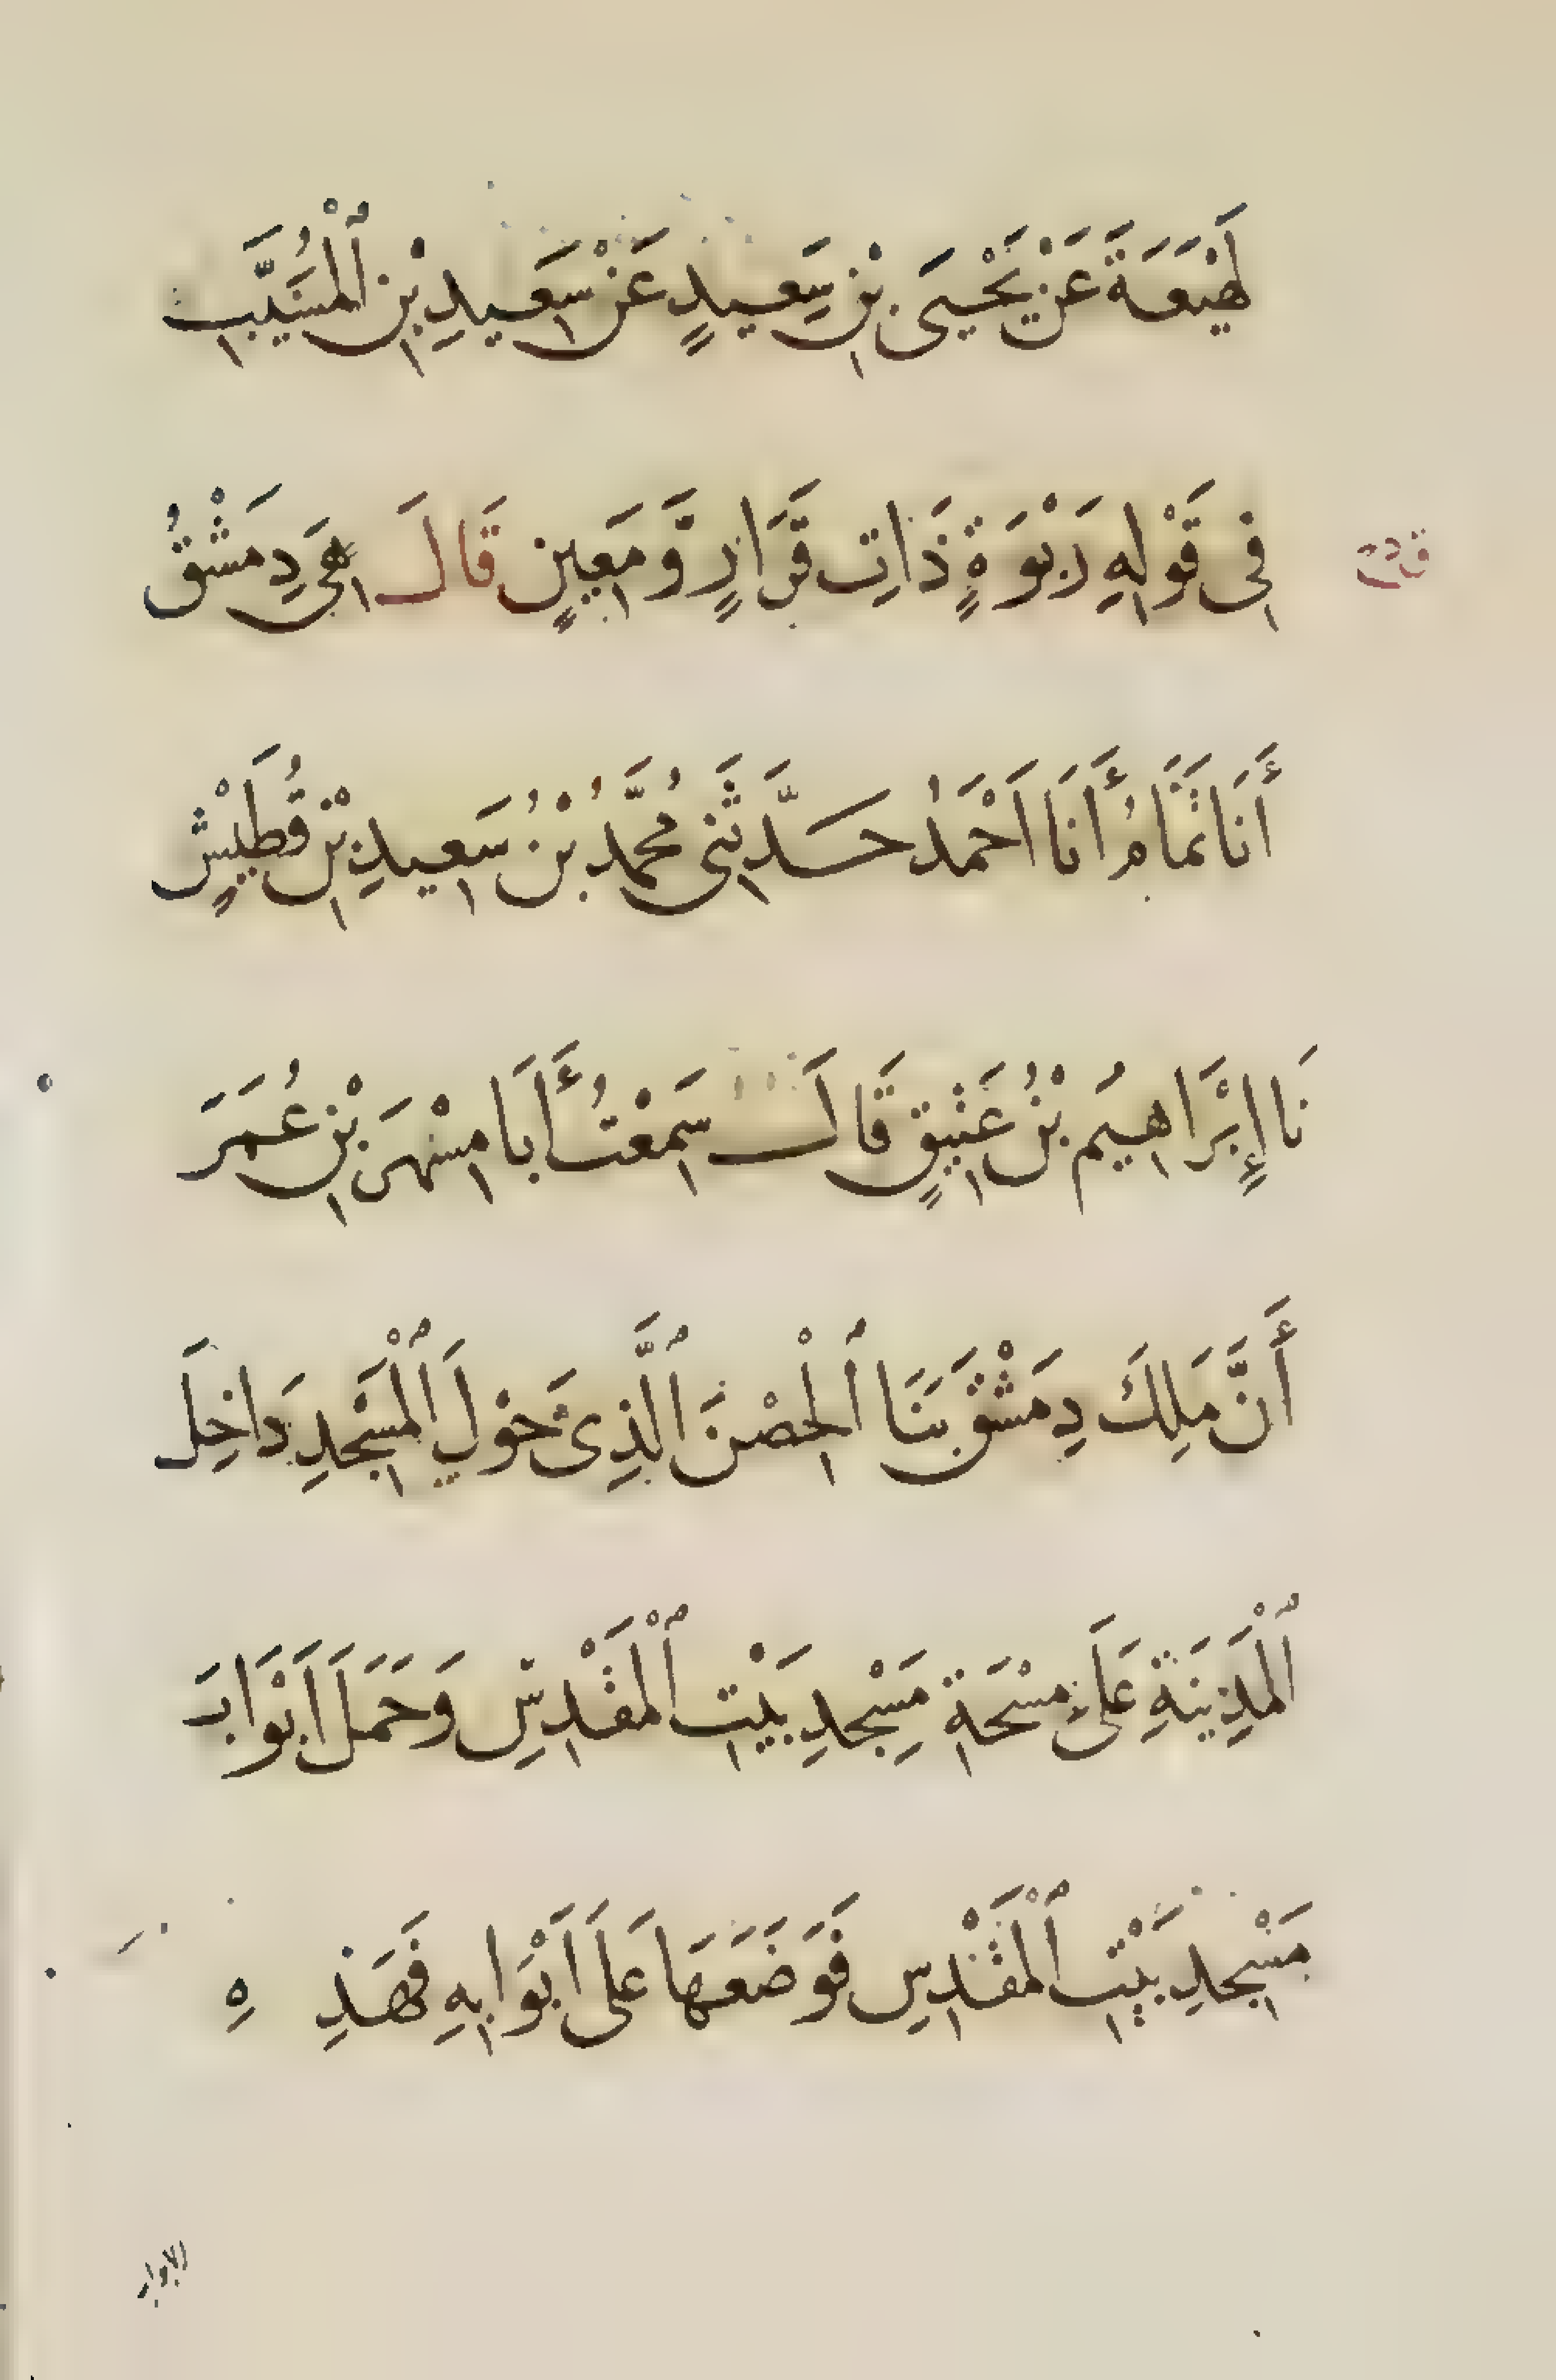 لَهِيعَةَ عَنْ يَحْيَى بْنِ سَعِيدٍ عَنْ سَعِيدِ بْنِ ٱلْمُسَيَّبِ
فِي قَوْلِهِ رَبْوَةٍ ذَاتِ قَرَارٍ وَّمَعِينٍ قَالَ هِيَ دِمَشْقُ
أَنَا تَمَامُ أَنَا اَحْمَدُ حَدَّثَنِي مُحَمَّدُ بْنُ سَعِيدِ بْنِ قُطَيْشٍ
نَا إِبْرَاهِيمُ بْنُ عَتِيقٍ قَالَ سَمِعْتُ أَبَا مِسْهَرَ بْنِ عُمَرَ
أَنَّ مَلِكَ دِمَشْقَ بَنَا ٱلْحِصْنَ ٱلَّذِي حَوْلَ ٱلْمَسْجِدِ دَاخِلَ
ٱلْمَدِينَةِ عَلَى مِسْحَةِ مَسْجِدِ بَيْتِ ٱلْمَقْدِسِ وَحَمَلَ اَبْوَابَ
مَسْجِدِ بَيْتِ ٱلْمَقْدِسِ فَوَضَعَهَا عَلَى اَبْوَابِهِ فَهَذِهِ
الابواب